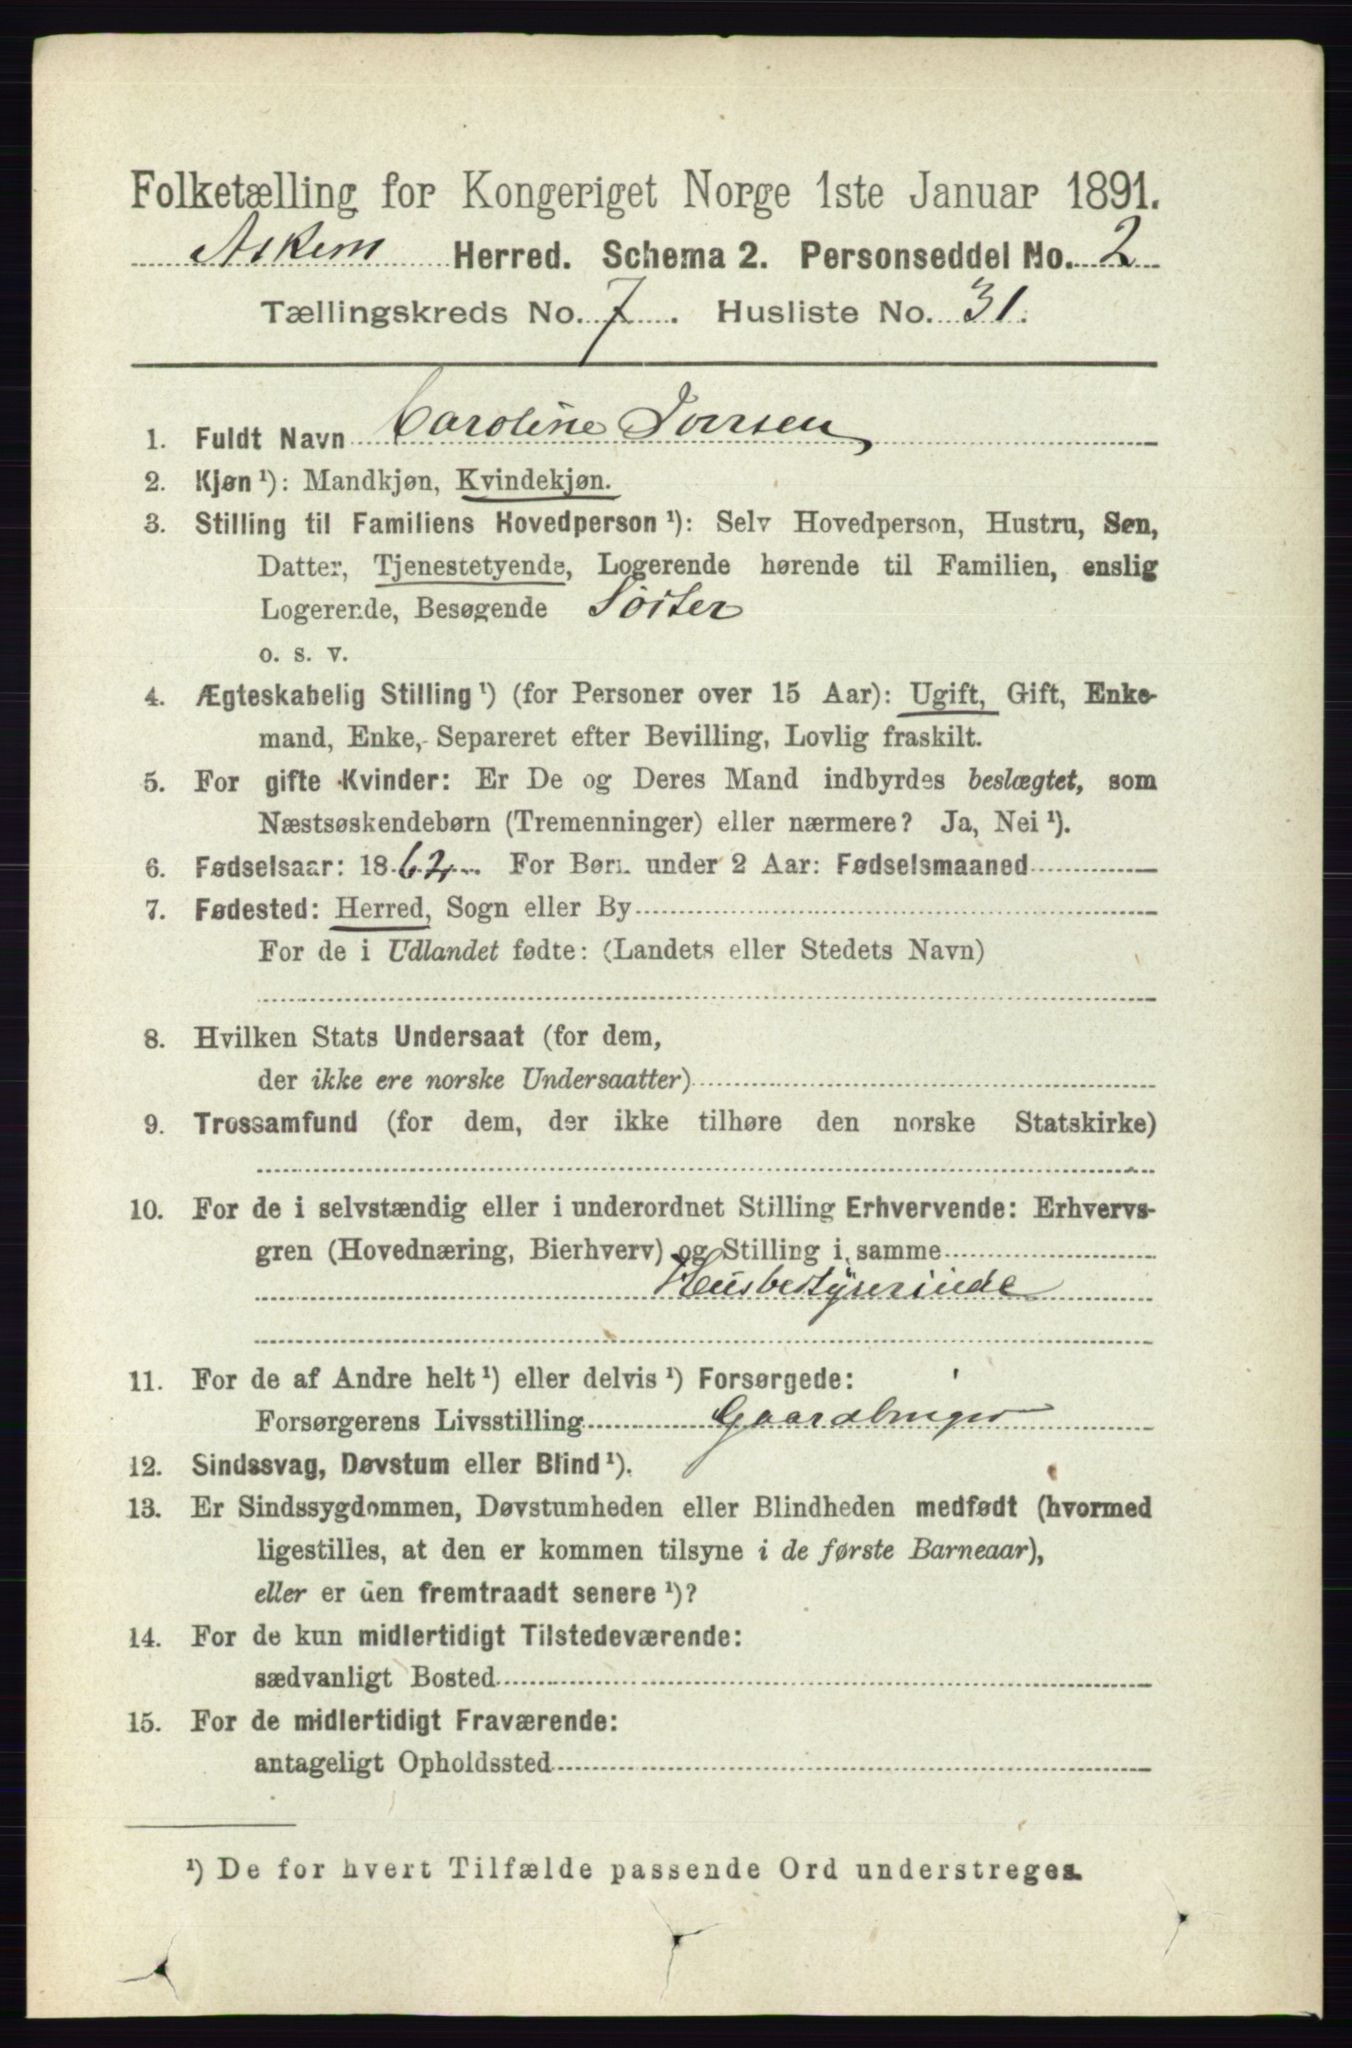 Folketælling for Kongeriget Norge 1ste Januar 1891.
Askem Herred. Schema 2. Personseddel No. 2
Tællingskreds No. 7. Husliste No. 31.
1. Fuldt Navn Caroline Iversen
2. Kjøn ¹): Mandkjøn, Kvindekjøn.
3. Stilling til Familiens Hovedperson ¹): Selv Hovedperson, Hustru, Søn,
Datter, Tjenestetyende, Logerende hørende til Familien, enslig
Logerende, Besøgende Söster
o. s. v.
4. Ægteskabelig Stilling ¹) (for Personer over 15 Aar): Ugift, Gift, Enke-
mand, Enke, Separeret efter Bevilling, Lovlig fraskilt.
5. For gifte Kvinder: Er De og Deres Mand indbyrdes beslægtet, som
Næstsøskendebørn (Tremenninger) eller nærmere? Ja, Nei ¹).
6. Fødselsaar: 1862. For Børn under 2 Aar: Fødselsmaaned
7. Fødested: Herred, Sogn eller By
For de i Udlandet fødte: (Landets eller Stedets Navn)
8. Hvilken Stats Undersaat (for dem,
der ikke ere norske Undersaatter)
9. Trossamfund (for dem, der ikke tilhøre den norske Statskirke)
10. For de i selvstændig eller i underordnet Stilling Erhvervende: Erhvervs-
gren (Hovednæring, Bierhverv) og Stilling i samme
Husbestyrerinde
11. For de af Andre helt ¹) eller delvis ¹) Forsørgede:
Forsørgerens Livsstilling Gaardbruger
12. Sindssvag, Døvstum eller Blind ¹).
13. Er Sindssygdommen, Døvstumheden eller Blindheden medfødt (hvormed
ligestilles, at den er kommen tilsyne i de første Barneaar),
eller er den fremtraadt senere ¹)?
14. For de kun midlertidigt Tilstedeværende:
sædvanligt Bosted
15. For de midlertidigt Fraværende:
antageligt Opholdssted
¹) De for hvert Tilfælde passende Ord understreges.